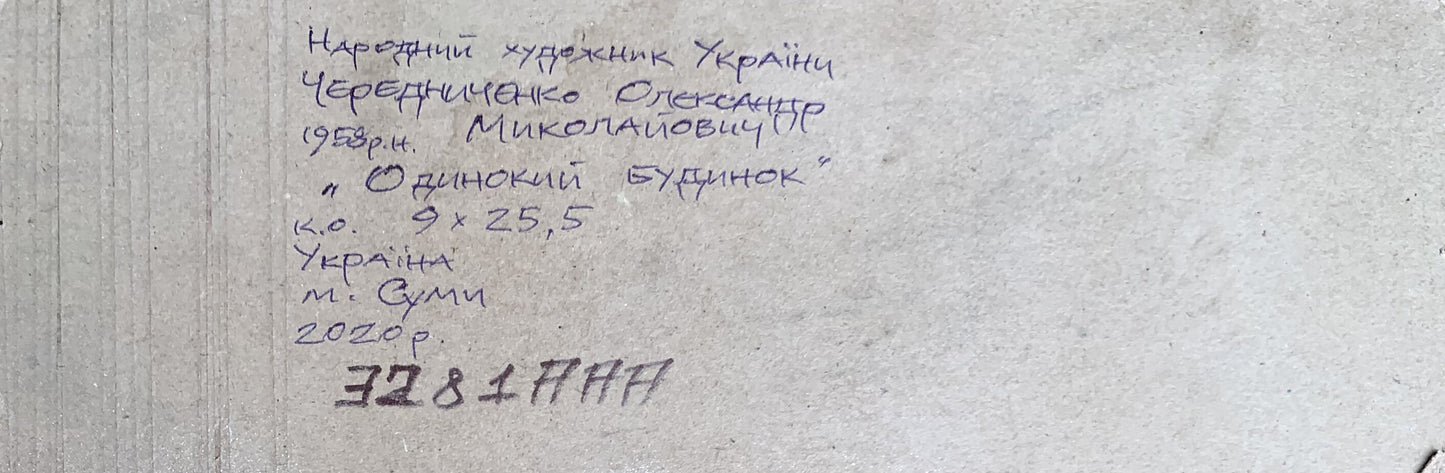 Народний художник України
Чередниченко Олександр
1958р.н. Миколайович
„Одинокий будинок“
к.о. 9 х 25,5
Україна
м. Суми
2020р.
3281AAA